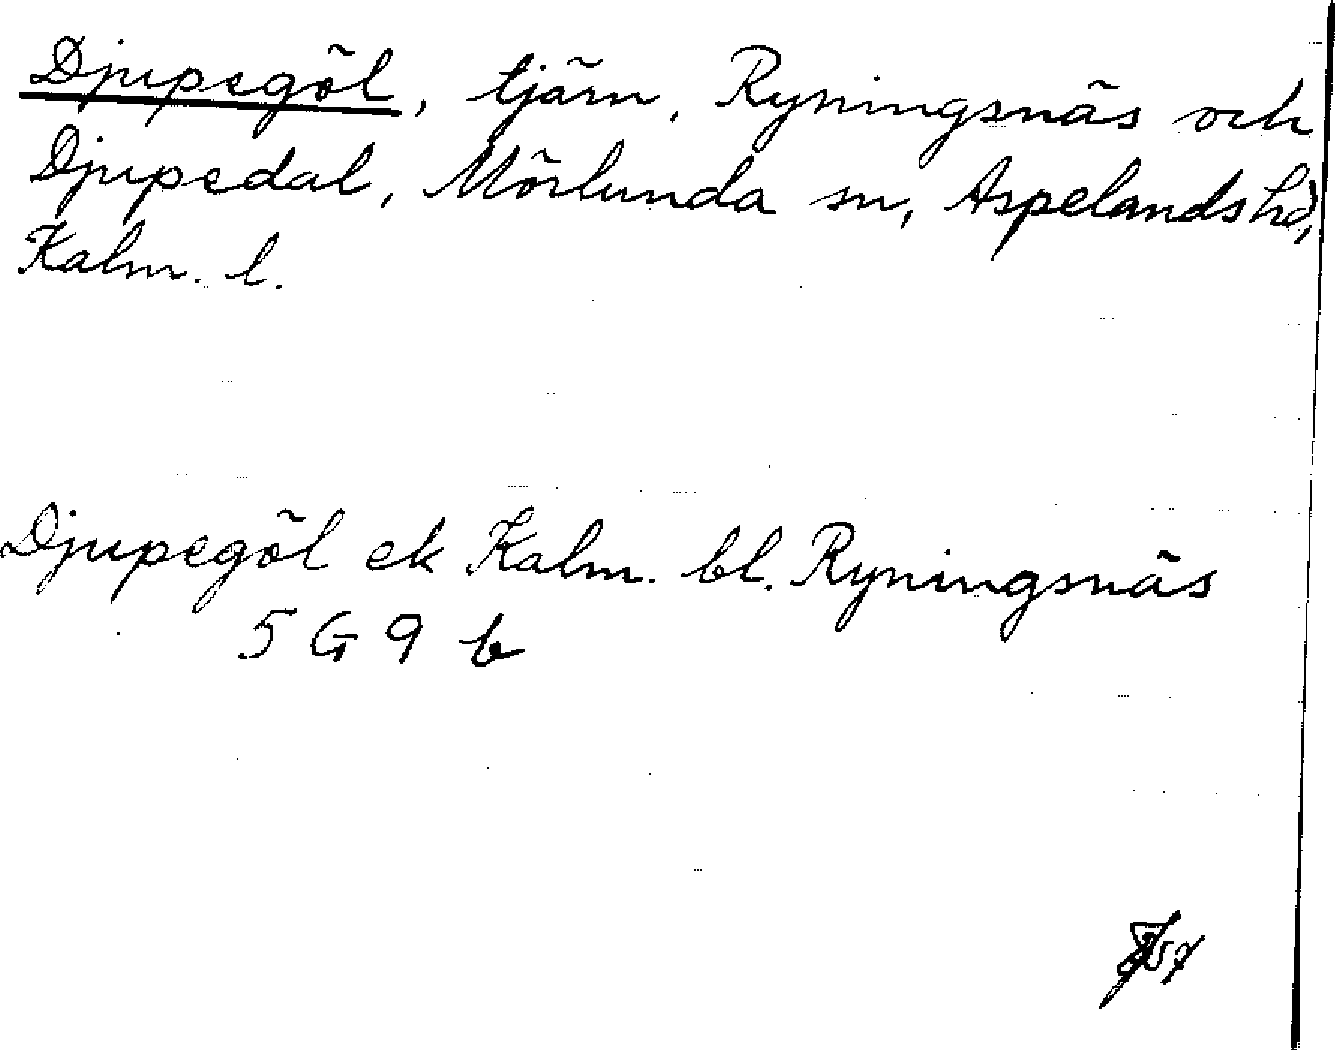 Djupegöl, tjärn, Ryningsnäs och
Djupedal, Mörlunda sn, Aspelands hd,
Kalm. l.
Djupegöl ek Kalm. bl. Ryningsnäs
5 G 9 b